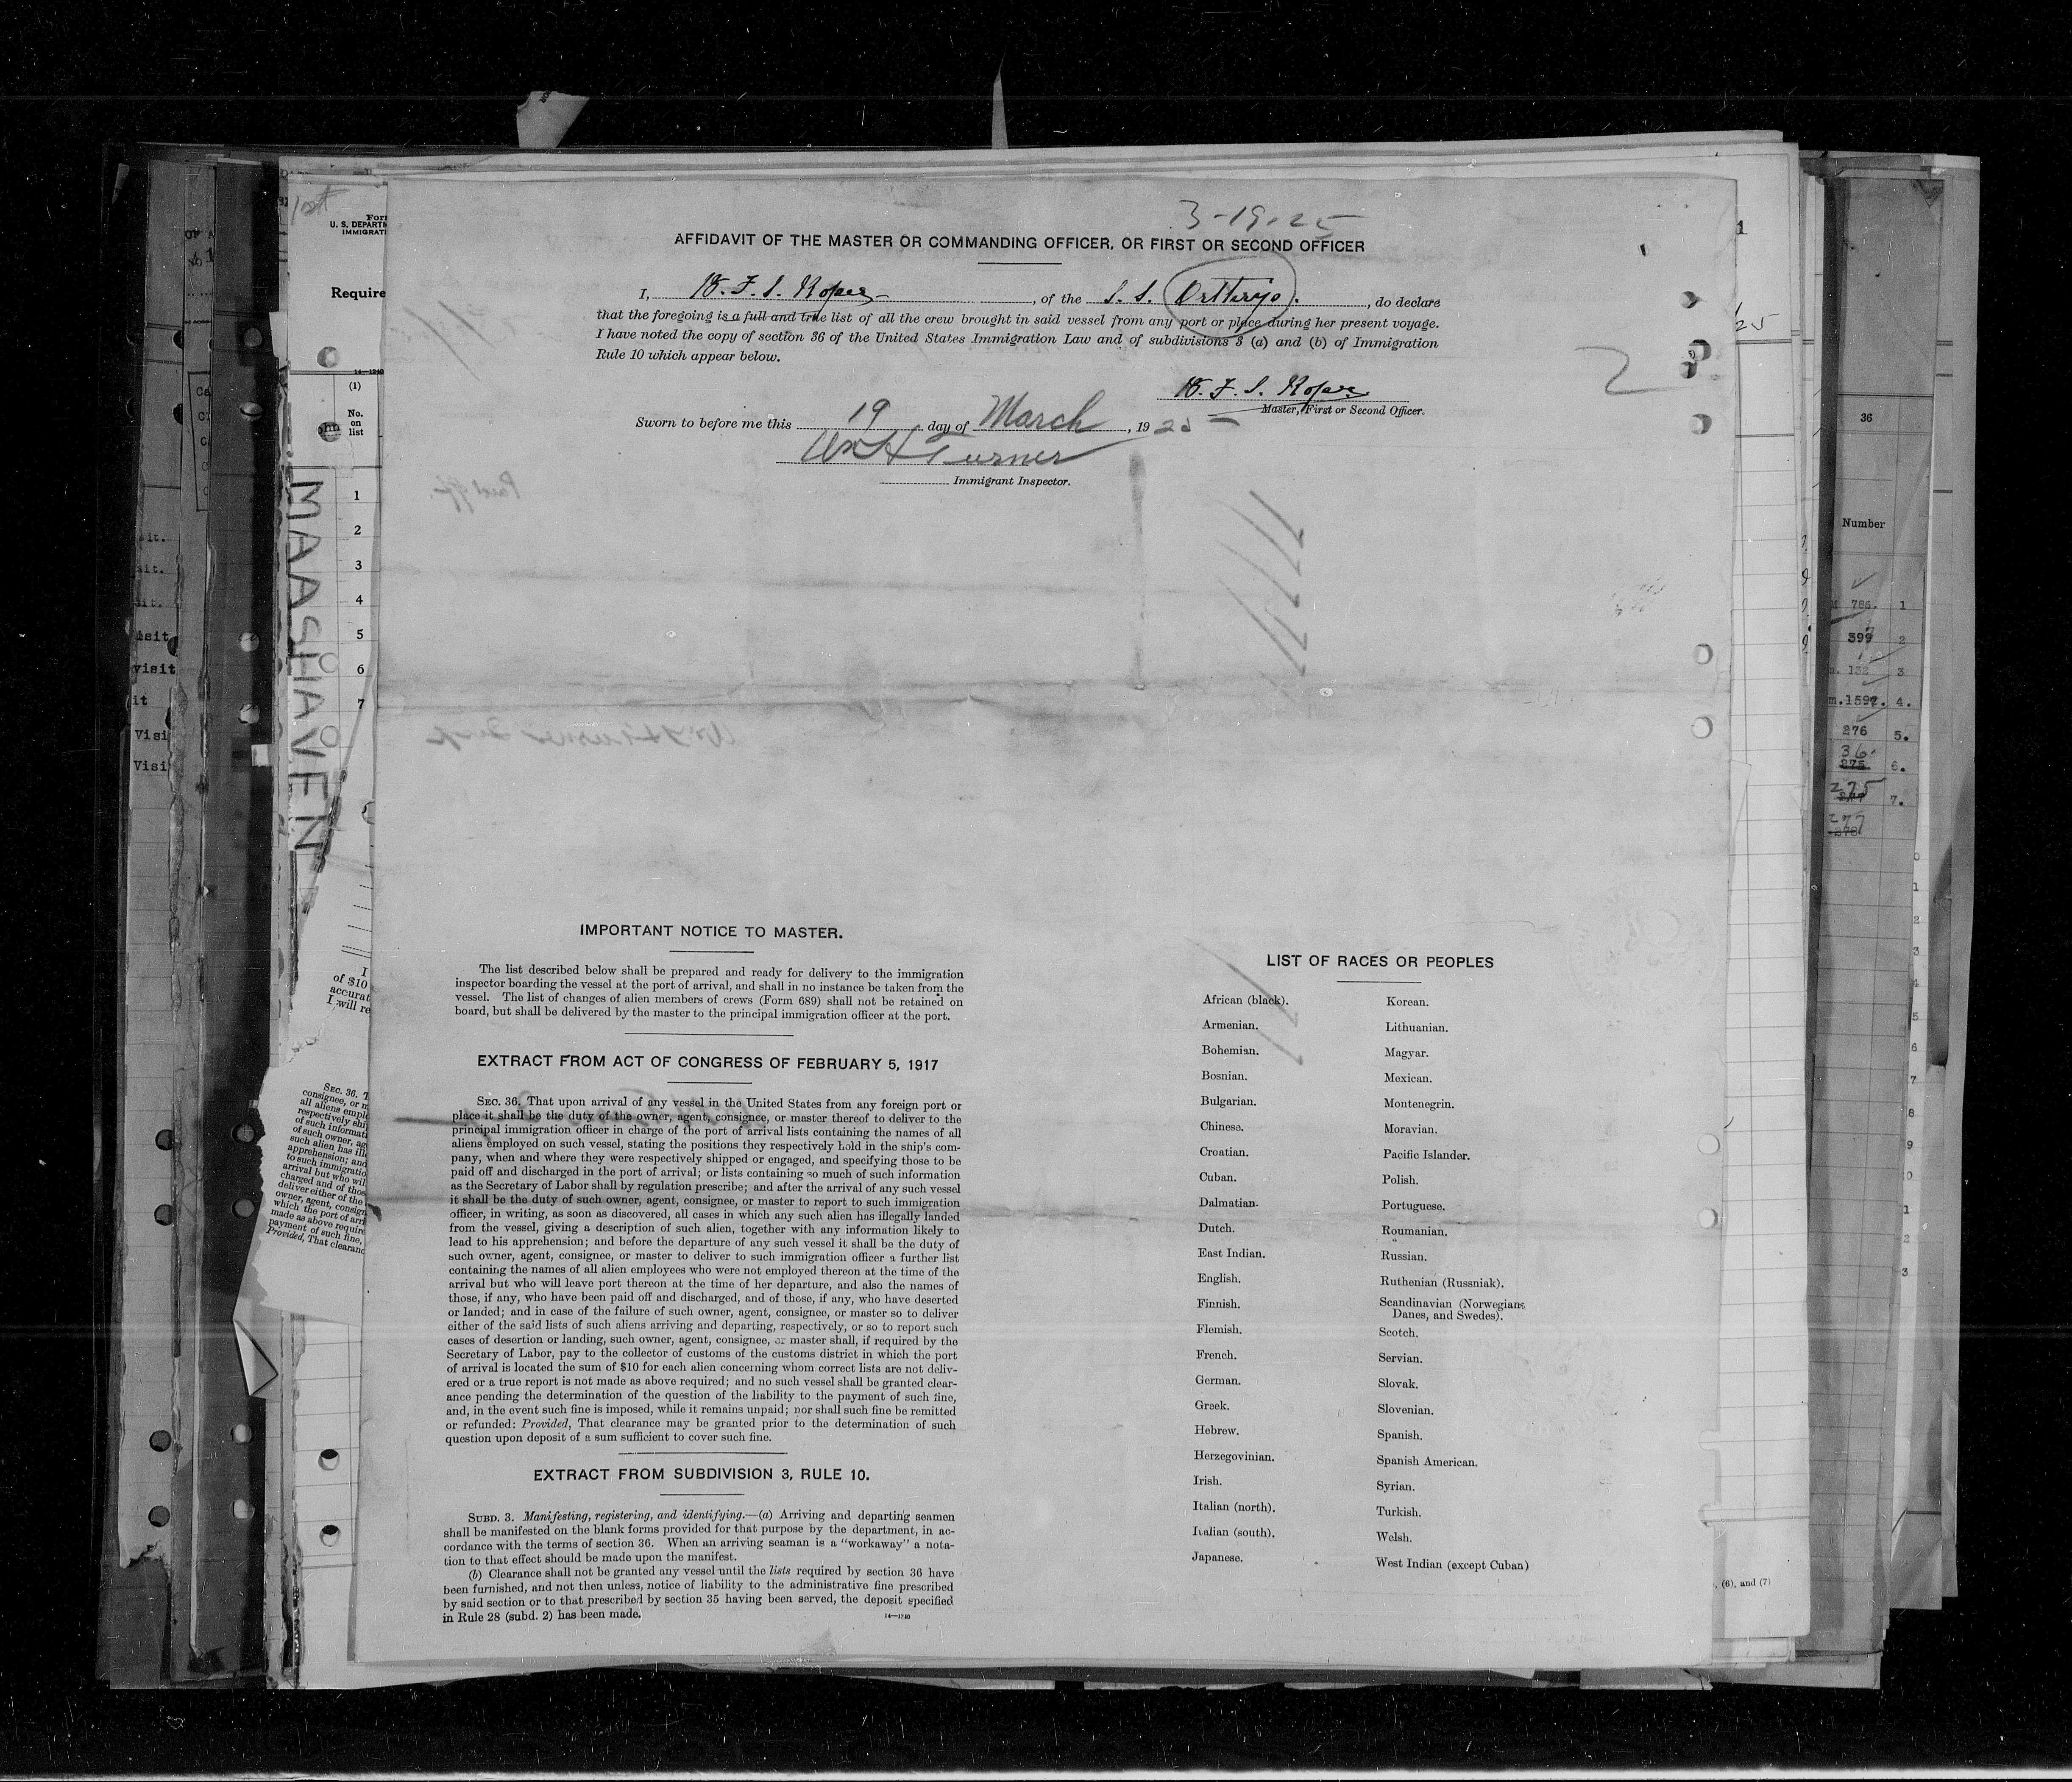 3-19-25
AFFIDAVIT OF THE MASTER OR COMMANDING OFFICER, OR FIRST OR SECOND OFFICER
I, W. F. S. Roper, of the S. S. Ortheryo., do declare
that the foregoing is a full and true list of all the crew brought in said vessel from any port or place during her present voyage.
I have noted the copy of section 36 of the United States Immigration Law and of subdivisions 3 (a) and (b) of Immigration
Rule 10 which appear below.
2
W. F. S. Roper
Master, First or Second Officer.
Sworn to before me this 19 day of March, 1925
Wm H Turner
Immigrant Inspector.
IMPORTANT NOTICE TO MASTER.
The list described below shall be prepared and ready for delivery to the immigration
inspector boarding the vessel at the port of arrival, and shall in no instance be taken from the
vessel. The list of changes of alien members of crews (Form 689) shall not be retained on
board, but shall be delivered by the master to the principal immigration officer at the port.
EXTRACT FROM ACT OF CONGRESS OF FEBRUARY 5, 1917
SEC. 36. That upon arrival of any vessel in the United States from any foreign port or
place it shall be the duty of the owner, agent, consignee, or master thereof to deliver to the
principal immigration officer in charge of the port of arrival lists containing the names of all
aliens employed on such vessel, stating the positions they respectively hold in the ship's com-
pany, when and where they were respectively shipped or engaged, and specifying those to be
paid off and discharged in the port of arrival; or lists containing so much of such information
as the Secretary of Labor shall by regulation prescribe; and after the arrival of any such vessel
it shall be the duty of such owner, agent, consignee, or master to report to such immigration
officer, in writing, as soon as discovered, all cases in which any such alien has illegally landed
from the vessel, giving a description of such alien, together with any information likely to
lead to his apprehension; and before the departure of any such vessel it shall be the duty of
such owner, agent, consignee, or master to deliver to such immigration officer a further list
containing the names of all alien employees who were not employed thereon at the time of the
arrival but who will leave port thereon at the time of her departure, and also the names of
those, if any, who have been paid off and discharged, and of those, if any, who have deserted
or landed; and in case of the failure of such owner, agent, consignee, or master so to deliver
either of the said lists of such aliens arriving and departing, respectively, or so to report such
cases of desertion or landing, such owner, agent, consignee, or master shall, if required by the
Secretary of Labor, pay to the collector of customs of the customs district in which the port
of arrival is located the sum of $10 for each alien concerning whom correct lists are not deliv-
ered or a true report is not made as above required; and no such vessel shall be granted clear-
ance pending the determination of the question of the liability to the payment of such fine,
and, in the event such fine is imposed, while it remains unpaid; nor shall such fine be remitted
or refunded: Provided, That clearance may be granted prior to the determination of such
question upon deposit of a sum sufficient to cover such fine.
EXTRACT FROM SUBDIVISION 3, RULE 10.
SUBD. 3. Manifesting, registering, and identifying.—(a) Arriving and departing seamen
shall be manifested on the blank forms provided for that purpose by the department, in ac-
cordance with the terms of section 36. When an arriving seaman is a "workaway" a nota-
tion to that effect should be made upon the manifest.
(b) Clearance shall not be granted any vessel until the lists required by section 36 have
been furnished, and not then unless, notice of liability to the administrative fine prescribed
by said section or to that prescribed by section 35 having been served, the deposit specified
in Rule 28 (subd. 2) has been made.
14—1240
LIST OF RACES OR PEOPLES
African (black).
Armenian.
Bohemian.
Bosnian.
Bulgarian.
Chinese.
Croatian.
Cuban.
Dalmatian.
Dutch.
East Indian.
English.
Finnish.
Flemish.
French.
German.
Greek.
Hebrew.
Herzegovinian.
Irish.
Italian (north).
Italian (south).
Japanese.
Korean.
Lithuanian.
Magyar.
Mexican.
Montenegrin.
Moravian.
Pacific Islander.
Polish.
Portuguese.
Roumanian.
Russian.
Ruthenian (Russniak).
Scandinavian (Norwegians
Danes, and Swedes).
Scotch.
Servian.
Slovak.
Slovenian.
Spanish.
Spanish American.
Syrian.
Turkish.
Welsh.
West Indian (except Cuban)
MAASHAVEN
Require
(1)
No.
on
list
1
2
3
4
5
6
7
36
Number
, (6), and (7)